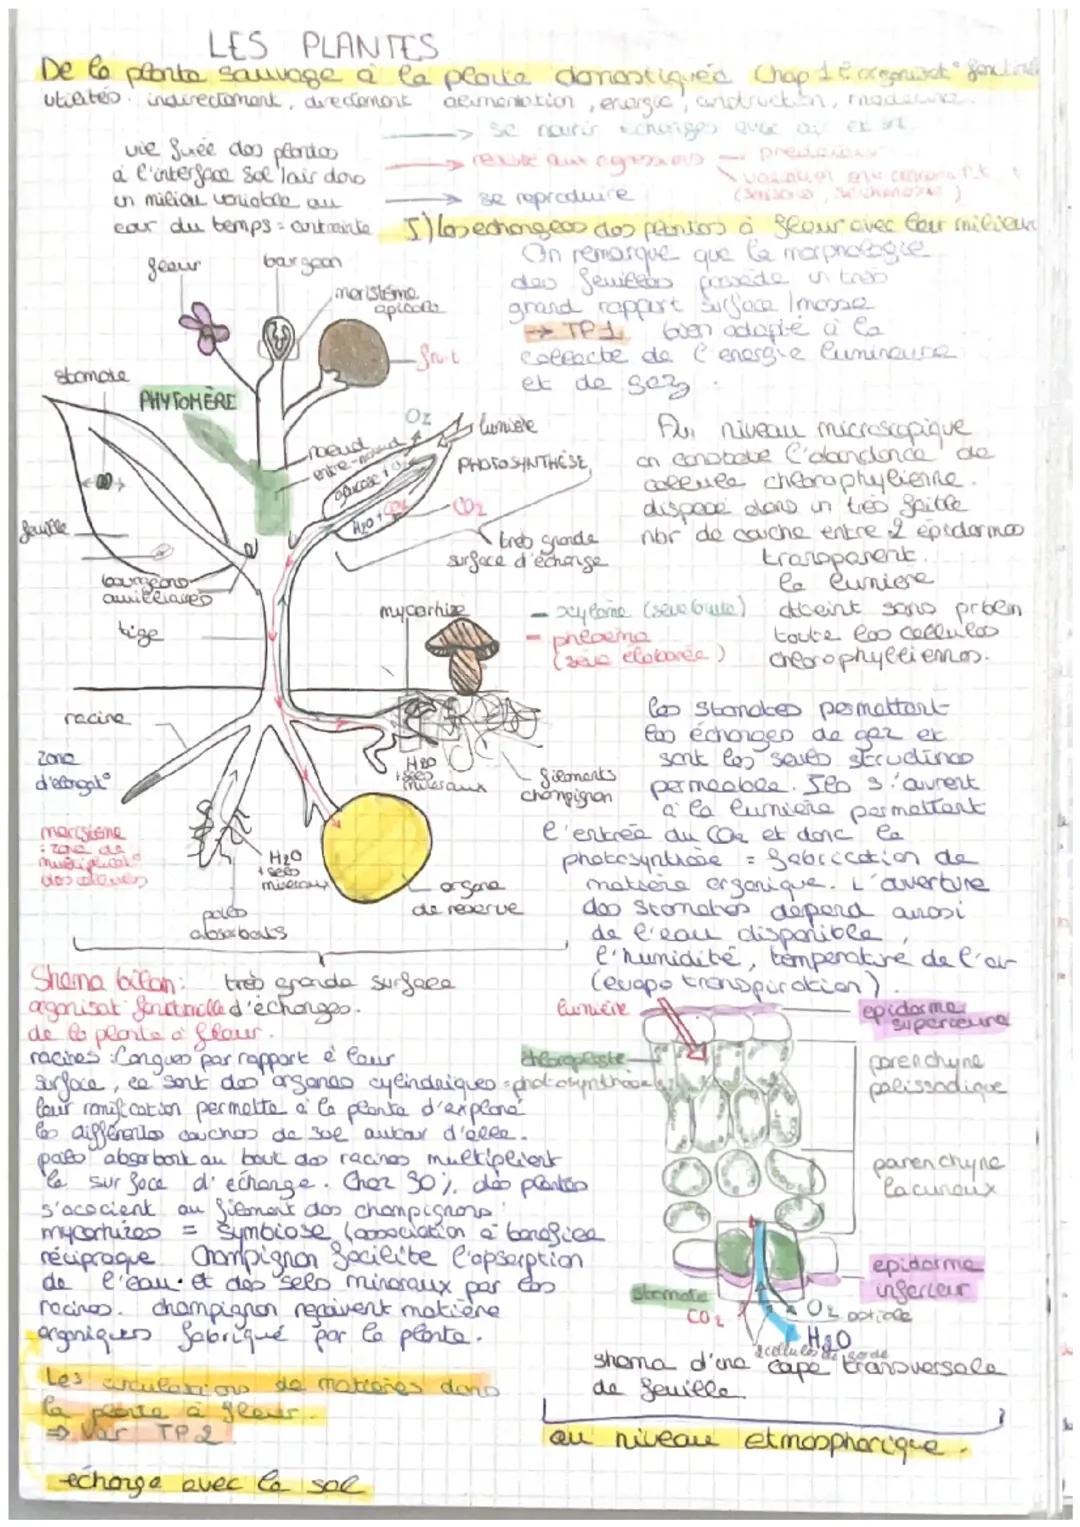 LES PLANTES
De la plante sauvage à la plante domestiquée Chap 1 : organisat° fonctionelle
utilités : indirectement, directement alimentation, énergie, construction, médecine.
→ se nourir échanges avec air et sol
vie fixée des plantes
à l'interface sol/air dans
un milieu variable au
cour du temps = contrainte
→ résiste aux agressions
prédateurs
variation environnement
→ se reproduire
I) Les échanges des plantes à fleur avec leur milieux
On remarque que la morphologie
des feuilles possède un très
grand rapport surface/masse
→ TP1 bien adapté à la
collecte de l'énergie lumineuse
et de gaz.
fleur
bourgeon
meristème
apicale
fruit
stomate
PHYTOMÈRE
noeud
entre-noeud
O2
lumière
glucose + O2
PHOTOSYNTHÈSE
H2O + CO2
CO2
très grande
surface d'échange
feuille
bourgeons
auxilliaires
tige
mycorhize
- xylème (sève brute)
- phloème
(sève élaborée)
Au niveau microscopique
on constate l'abondance de
cellule chlorophylienne.
disposé dans un très faible
nbr de couche entre 2 épidermes
transparent.
la lumière
atteint sans prblm
toute les cellules
chlorophylliennes.
racine
zone
d'élongat°
meristème
: zone de
multiplicat°
des cellules
H2O
+ sels
minéraux
filements
champignon
H2O
+ sels
minéraux
poils
absorbants
organe
de réserve
les stomates permettent
les échanges de gaz et
sont les seules structures
permeable. Ils s'ouvrent
à la lumière permettant
l'entrée du CO2 et donc la
photosynthèse = fabrication de
matière organique. L'ouverture
des stomates dépend aussi
de l'eau disponible,
l'humidité, température de l'air
(evapo transpiration).
Shema bilan :
organisat° fonctionnelle
de la plante à fleur.
très grande surface
d'échanges.
racines : longues par rapport à leur
surface, ce sont des organes cylindriques
leur ramification permette à la plante d'exploré
les différentes couches de sol autour d'elle.
poils absorbant au bout des racines multiplient
la surface d'échange. Chez 90% des plantes
s'ascocient au filement des champignons :
mycorhizes = symbiose (association à bénéfice
réciproque Champignon facilite l'apserption
de l'eau et des sels minéraux par les
racines. champignon reçoivent matière
organiques fabriqué par la plante.
lumière
epiderme
superieure
chloroplaste
= photosynthèse
parenchyne
palissadique
parenchyne
lacuneux
epiderme
inferieur
stomate
CO2
O2
ostiole
H2O
2 cellules de garde
shema d'une cape transversale
de feuille
au niveau etmospherique.
Les circulations de matières dans
la plante à fleur.
⇒ Voir TP 2
echange avec le sol